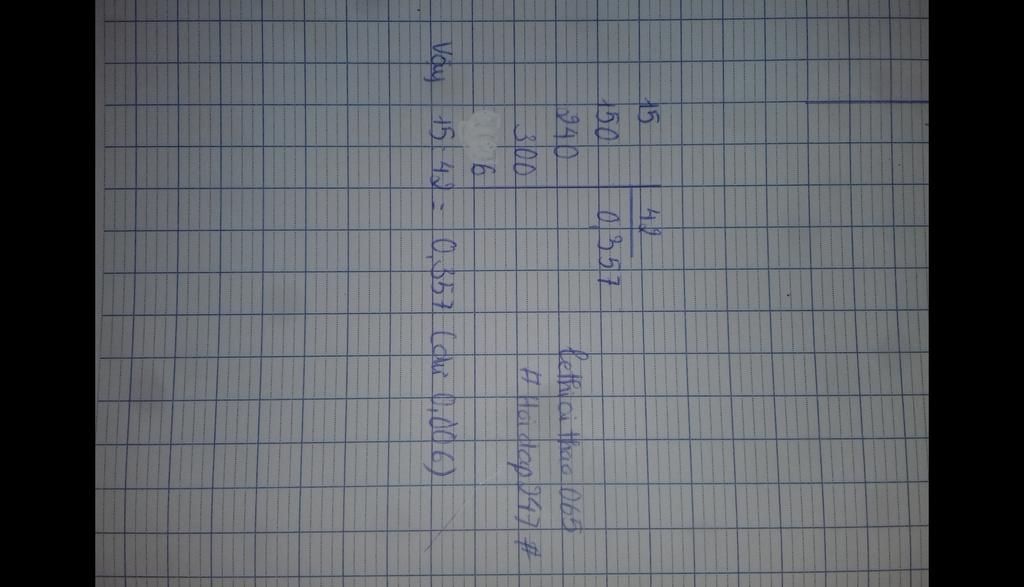 15 42
150 0,357
240
300
6
Vậy 15:42 = 0,357 (dư 0,006)
lethicithao065
#Hoidap247#